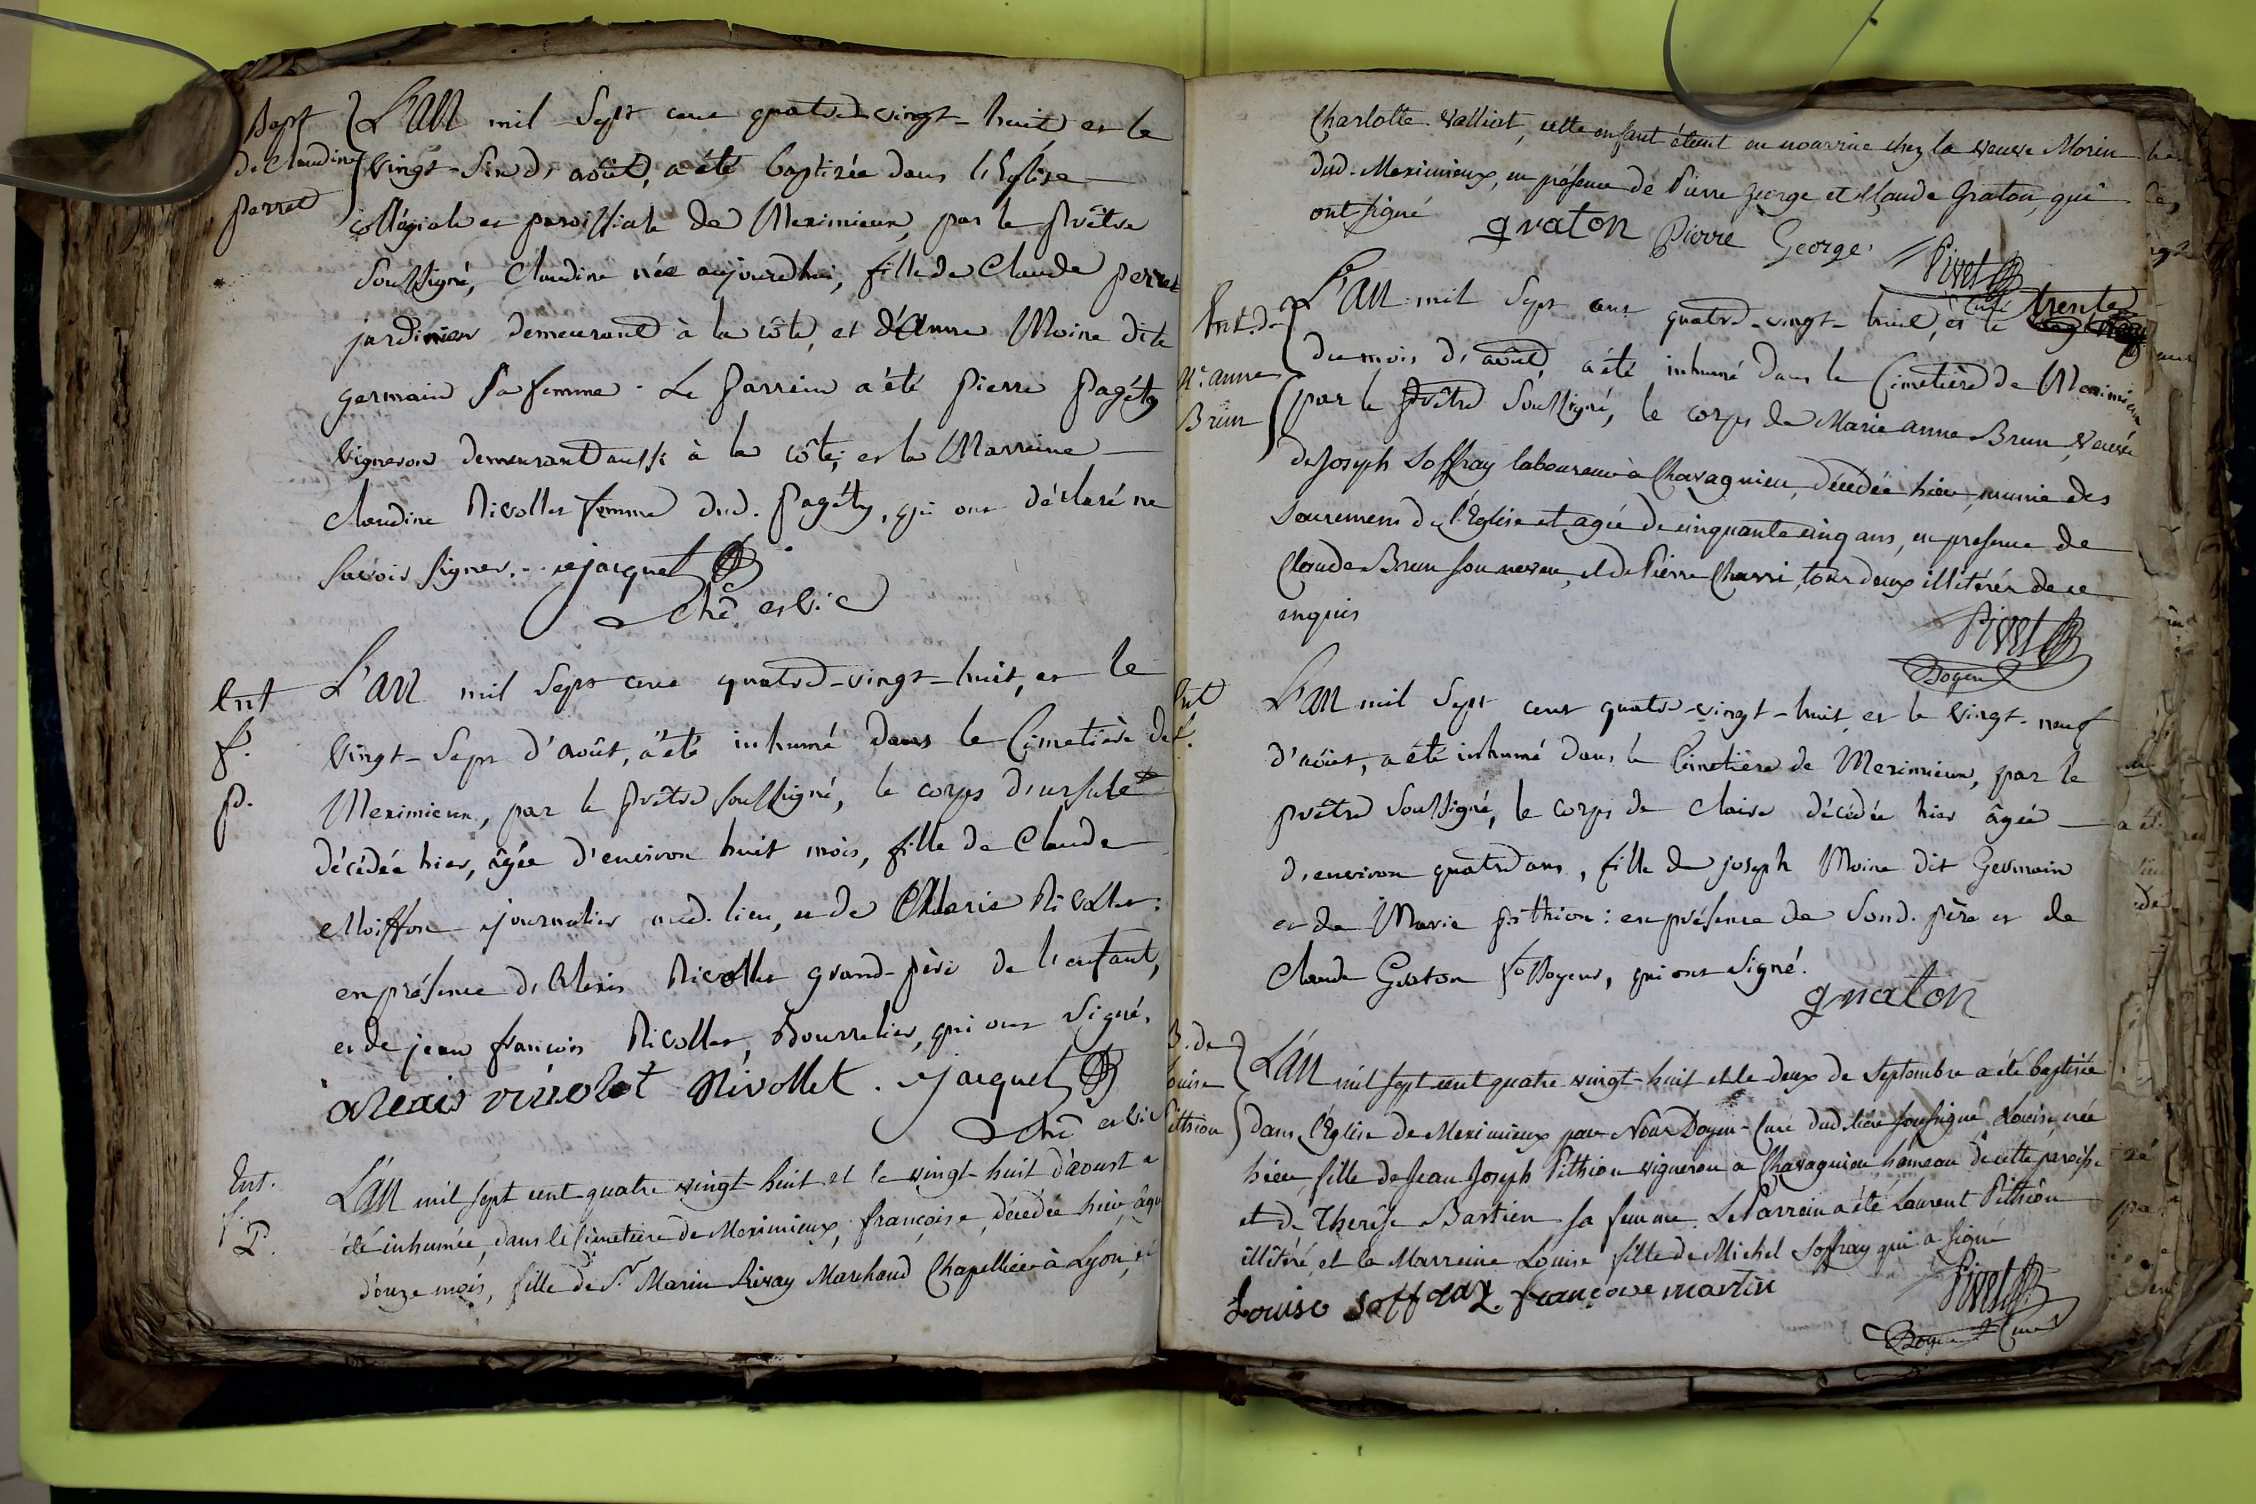 Bapt
de Claudine
perret
L'an mil Sept cent quatre vingt-huit et le
vingt-Six d'août, a été baptisée dans l'Eglise
collégiale et paroissiale de Meximieux, par le Prêtre
Soussigné, Claudine née aujourd'hui, fille de Claude perret
jardinier demeurant à la côte, et d'Anne Moine dite
germain Sa femme. Le Parrein a été Pierre Pagéty
vigneron demeurant aussi à la côte; et la Marreine
Claudine Nivollet femme dud. Pagéty, qui ont déclaré ne
Savoir Signer. jacquet
che et vic
Ent
f.
p.
L'an mil Sept cent quatre-vingt-huit, et le
vingt-Sept d'août, a été inhumé dans le Cimetière de
Meximieux, par le prêtre soussigné, le corps d'ursule
décédée hier, âgée d'environ huit mois, fille de Claude
Moiffon journalier aud. lieu, et de Marie Nivollet:
en présence d'Alexis Nivollet grand-père de l'enfant,
et de jean françois Nivollet, Bourrelier, qui ont Signé.
alexis nivolet Nivollet. jacquet
che et vic
Ent.
f.
P.
L'an mil sept cent quatre vingt-huit et le vingt-huit d'aoust a
été inhumée, dans le Cimetiere de Meximieux, françoise, décédée hier, âgée
d'onze mois, fille de Sr. Marin Rivay Marchand Chapellier à Lyon, et
Charlotte Valliot, cette enfant étant en nourrice chez la veuve Morin
dud. Meximieux, en présence de Pierre George et Claude Graton, qui
ont signé graton Pierre George. Pivet
Curé
Ent. de
Me. anne
Brun
L'an mil Sept cent quatre-vingt-huit, et le trente
du mois d'août, a été inhumé dans le Cimetière de Meximieux
par le prêtre Soussigné, le corps de Marie anne Brun, veuve
de Joseph Soffray laboureur à Chavagnieu, décédée hier, munie des
Sacremens de l'Eglise et agée de cinquante cinq ans, en présence de
Claude Brun son neveu, et de Pierre Charri, tous deux illitérés de ce
enquis
Pivet
Doyen
Ent
f.
L'an mil Sept cent quatre-vingt-huit et le vingt-neuf
d'août, a été inhumé dans le Cimetière de Meximieux, par le
prêtre Soussigné, le corps de Claire décédée hier âgée
d'environ quatre ans, fille de joseph Moine dit Germain
et de Marie pithion: en présence de Sond. père et de
Claude Graton fossoyeur, qui ont Signé.
graton
B. de
Louise
Pithion
L'an mil sept cent quatre vingt-huit et le deux de septembre a été baptisée
dans l'Eglise de Meximieux par Nous Doyen-Curé dud. lieu soussigné Louise, née
hier, fille de Jean Joseph Pithion vigneron à Chavagnieu hameau de cette paroisse
et de Therese Bastien sa femme. Le Parrein a été Laurent Pithion
illitéré, et la Marreine Louise fille de Michel Soffray qui a signé
Louise Soffray françoise martin
Pivet
Doyen Curé